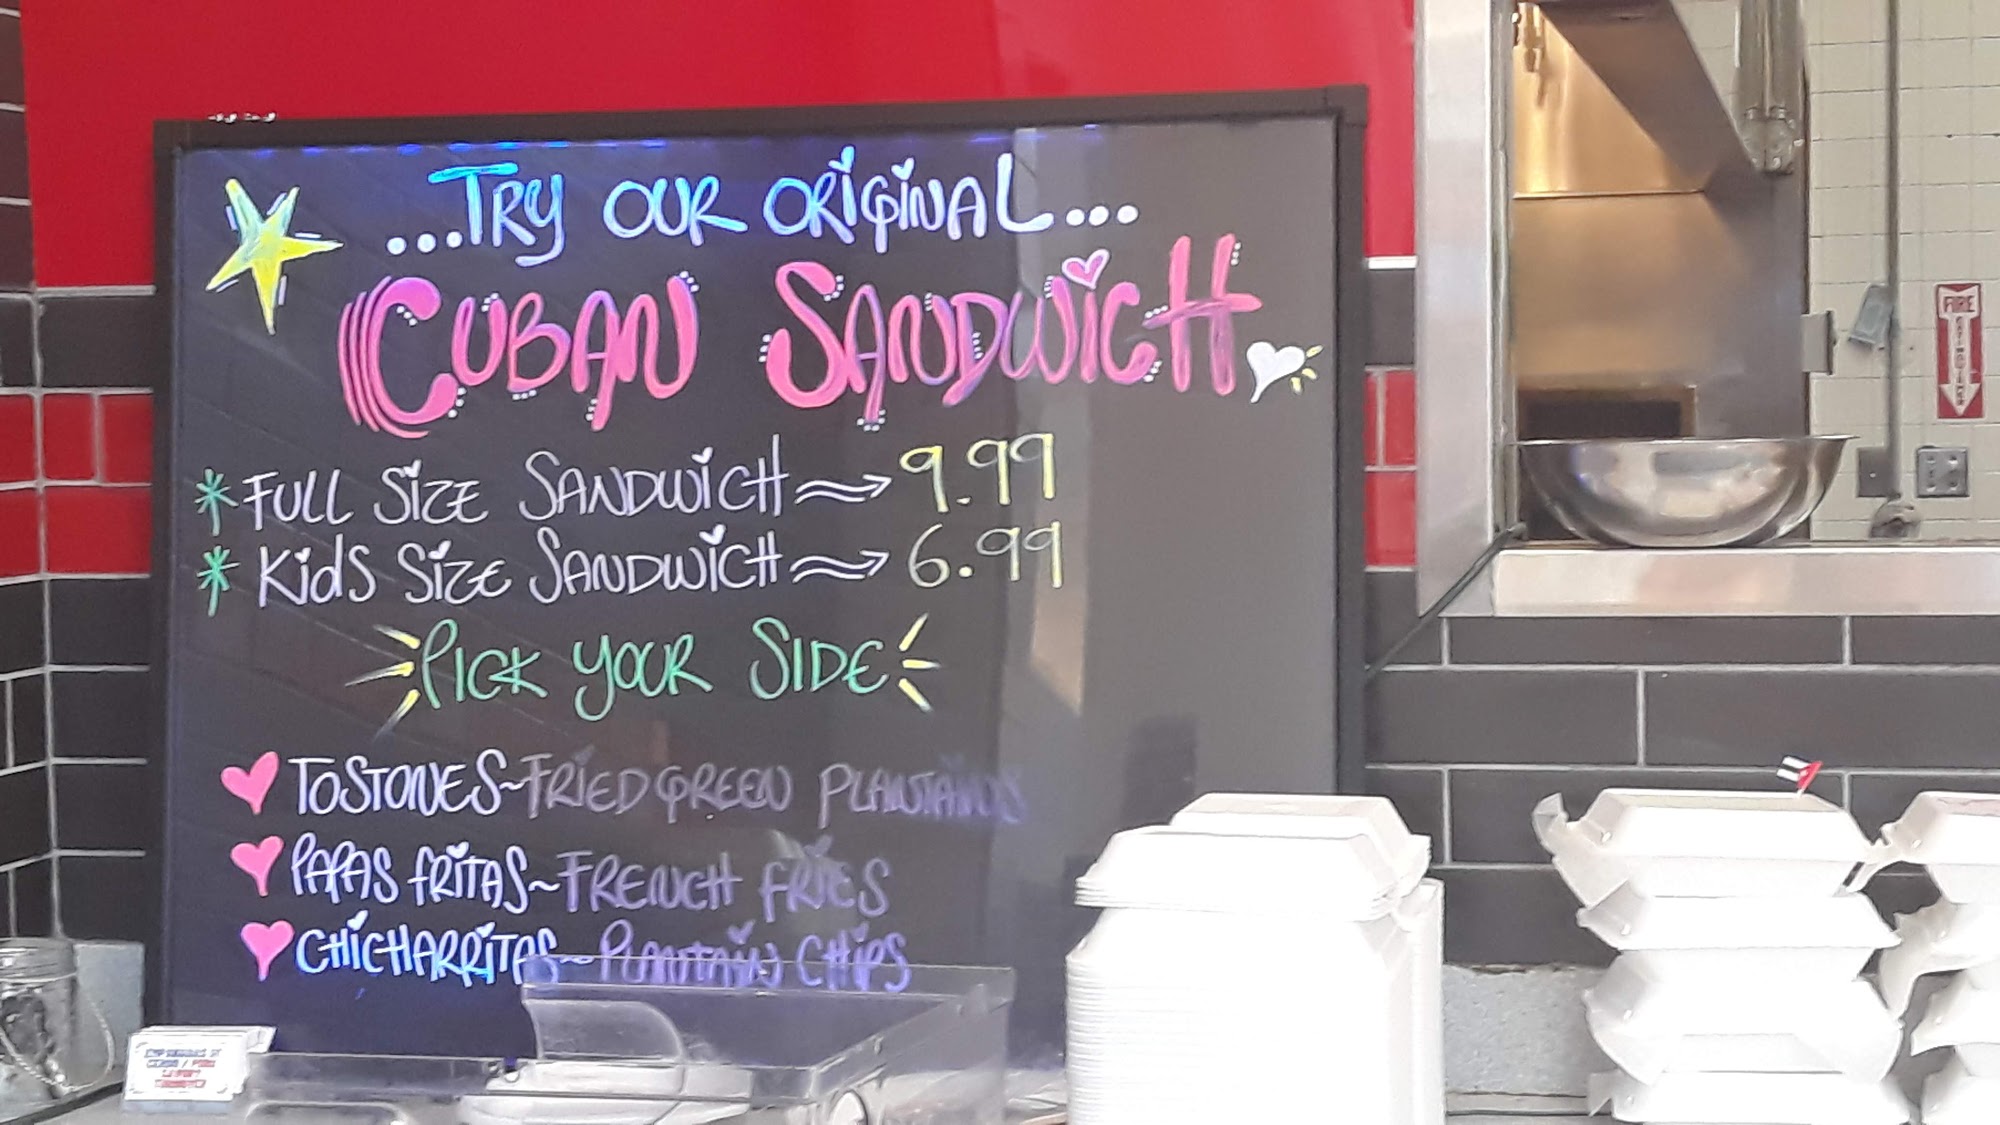 ...TRY OUR ORIGINAL...
CUBAN SANDWICH
* FULL SIZE SANDWICH 9.99
* KidS SIZE SANDWICH 6.99
PICK YOUR SIDE
TOSTONES~FRIED GREEN PLANTAINS
PAPAS FRITAS~FRENCH FRIES
CHICHARRITAS~PLANTAIN CHIPS
FIRE